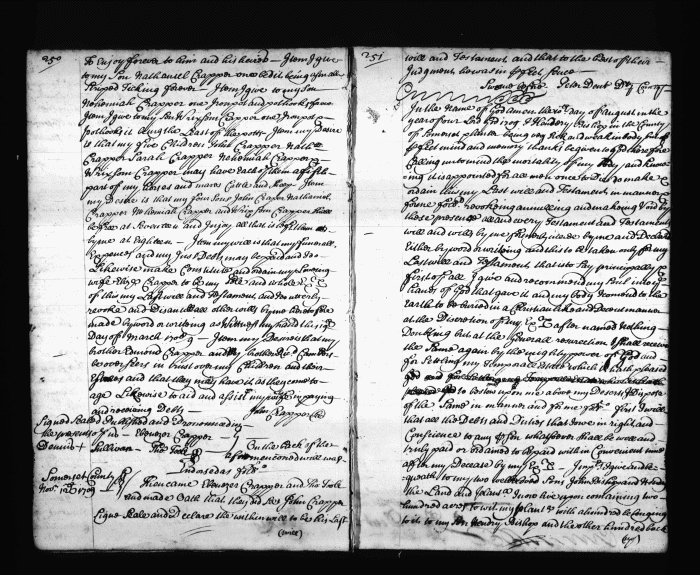 250
To Enjoy forever to him and his heires - Item I give
to my Son Nathaniel Crapper one bed it being a small
Striped Ticking - Item I give to my Son
Nehemiah Crapper one Iron pot and pothooks
Item I give to my Son Wrixam Crapper one Iron pot
pothooks it being the Last of the potts - Item my desire
is that my five Children John Crapper Nath:ll
Crapper Sarah Crapper Nehemiah Crapper &
Wrixam Crapper may have each of them a fifth
part of my horses and mares Cattle and Sheep - Item
my Desire is that my four Sons John Craper Nathaniel
Crapper Nehemiah Crapper and Wrixam Crapper shall
be free at Seventeen and Injoy all that is left them
by me at Eighteen - Item my will is that my funerall
Expences and my Just Debts may be paid and I do
Likewise make Constitute and ordain my Loveing
wife Crapper to be my sole and whole Ex:
of this my Last will and Testament, and do utterly
revoke and disanull all other wills by me heretofore
made by word or writeing as witness my hand this
Day of March 1708/9 - Item my Desire is that my
brother Edmond Crapper and my brother
be overseers in trust over my Children and their
Estates and that they may have it as they come to
age Likewise to aid and assist my wife in paying
and receiving Debts - John Crapper
Signed Sealed Published and Pronounced in
the presents of us - Ebenezer Crapper -
Dennis + Sullivan - Tho: Toole
On the back of the
aforementioned will was
Indorsed as foll:
Somerset County
Nov: 1709
Then came Ebenezer Crapper and Tho: Toole
and made Oath that they did see John Crapper
Signe Seale and Declare the within will to be his Last
(will)
251
will and Testament and that to the best of their
Judgment he was in perfect sence -
Sworne before Peter Dent Dty Com:ry
In the Name of God amen the day of August in the
year of our Lord 1709 I Henry Bishop in the County
of Somerset planter being very sick and weak in body but of
perfect mind and memory thanks be given to God therefore
Calling unto mind the mortality of my body and know-
-ing it is appointed for all men once to Die do make &
ordain this my Last will and Testament in manner &
forme foll: revoking annulling and making Void by
these presents all and every Testament and Testaments
will and wills by me formerly made by me and Declared
Either by word or writeing and this to be taken only for my
Last will and Testament, that is to say principally &
first of all I give and recommend my Soul into the
hands of God that gave it and my body I commit to the
earth to be buried in a Christian like and Decent manner
at the Discretion of my Ex: after named nothing
Doubting but at the Generall resurrection I shall receive
the Same again by the mighty power of God and
for Settling my Temporall Estate which it hath pleased
god
to bestow upon me above my Deserts I Dispose
of the Same in manner and forme foll: first I will
that all the Debts and Duties that I owe in right and
Conscience to any person whatsoever shall be well and
truly paid or ordained to be paid within Convenient time
after my Decease by my Ex: - Item I give and be-
queath to my two well beloved Sons John Bishop and Henry
the Land and plant: I now live upon containing two
hundred acres to wit my plant: with a hundred belonging
to it to my Son Henry Bishop and the other hundred back